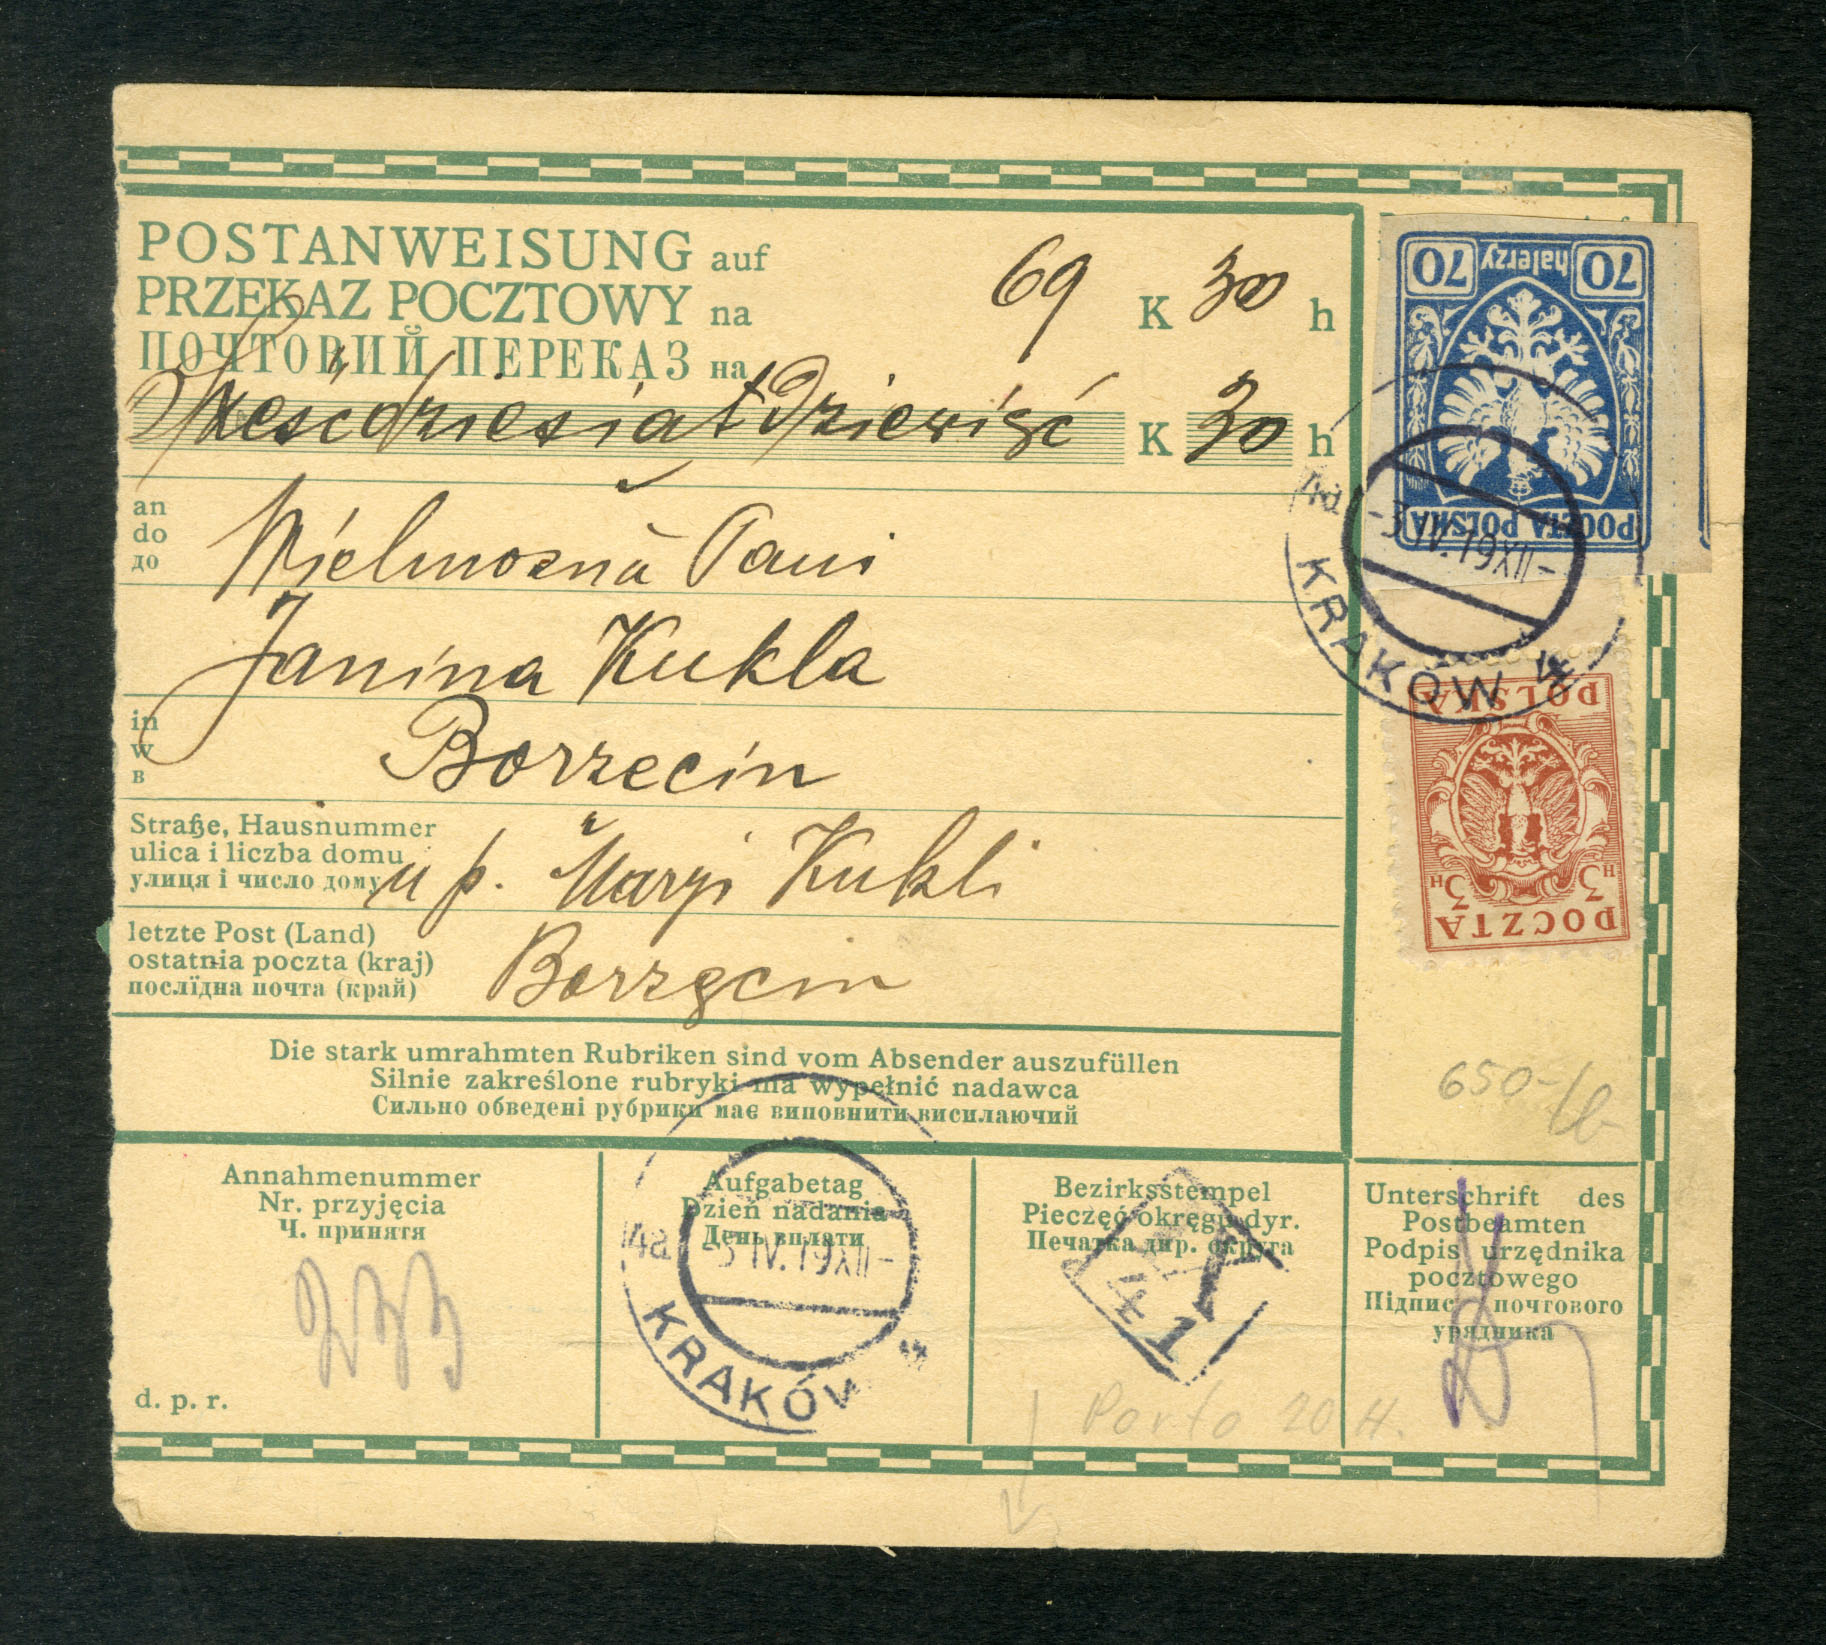 POSTANWEISUNG auf
PRZEKAZ POCZTOWY na
ПОЧТОВИЙ ПЕРЕКАЗ на
69 K 30 h
Sześćdziesiątdziewięć K 30 h
an
do
до
Wielmożna Pani
Janina Kukla
in
w
в
Borzecin
Straße, Hausnummer
ulica i liczba domu
улиця і число дому
u p. Maryi Kukli
letzte Post (Land)
ostatnia poczta (kraj)
послїдна почта (край)
Borzęcin
Die stark umrahmten Rubriken sind vom Absender auszufüllen
Silnie zakreślone rubryki ma wypełnić nadawca
Сильно обведені рубрики має виповнити висилаючий
Annahmenummer
Nr. przyjęcia
Ч. принятя
d. p. r.
Aufgabetag
Dzień nadania
День вплати
4a -3 IV. 19 XII-
KRAKÓW
Bezirksstempel
Pieczęć okręgu dyr.
Печатка дир. округа
41
Porto 20 H.
Unterschrift des
Postbeamten
Podpis urzędnika
pocztowego
Підпис почтового
урядника
70 halerzy 70
POCZTA POLSKA
4a -3 IV. 19 XII-
KRAKÓW
POLSKA
3 H 3 H
POCZTA
650-